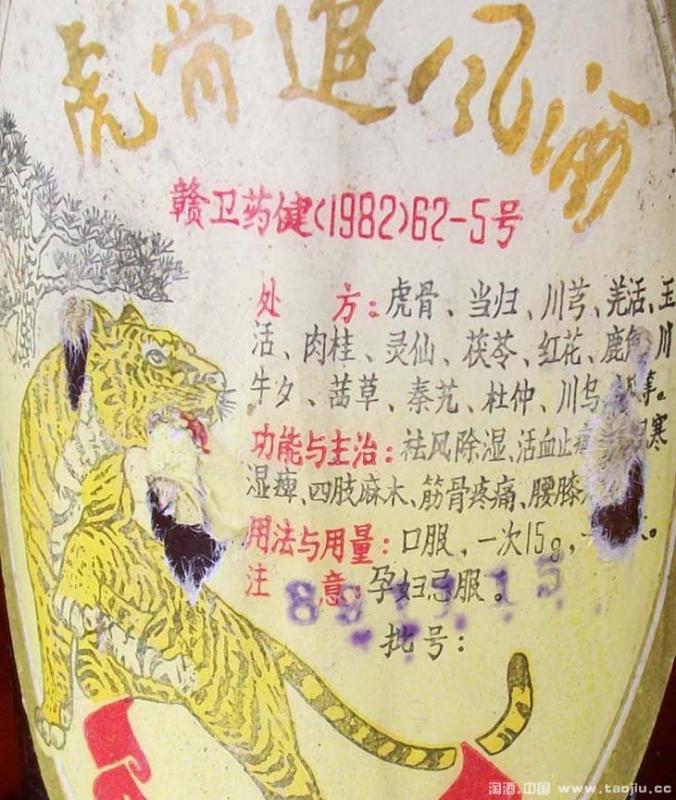 虎骨追风酒
赣卫药健(1982)62-5号
处方:虎骨、当归、川芎、羌活、玉
活、肉桂、灵仙、茯苓、红花、鹿角、川
牛夕、茜草、秦艽、杜仲、川乌、等。
功能与主治:祛风除湿、活血止痛寒
湿痹、四肢麻木、筋骨疼痛、腰膝
用法与用量:口服,一次15g,一
注意:孕妇忌服。
批号:
淘酒.中国 www.taojiu.cc